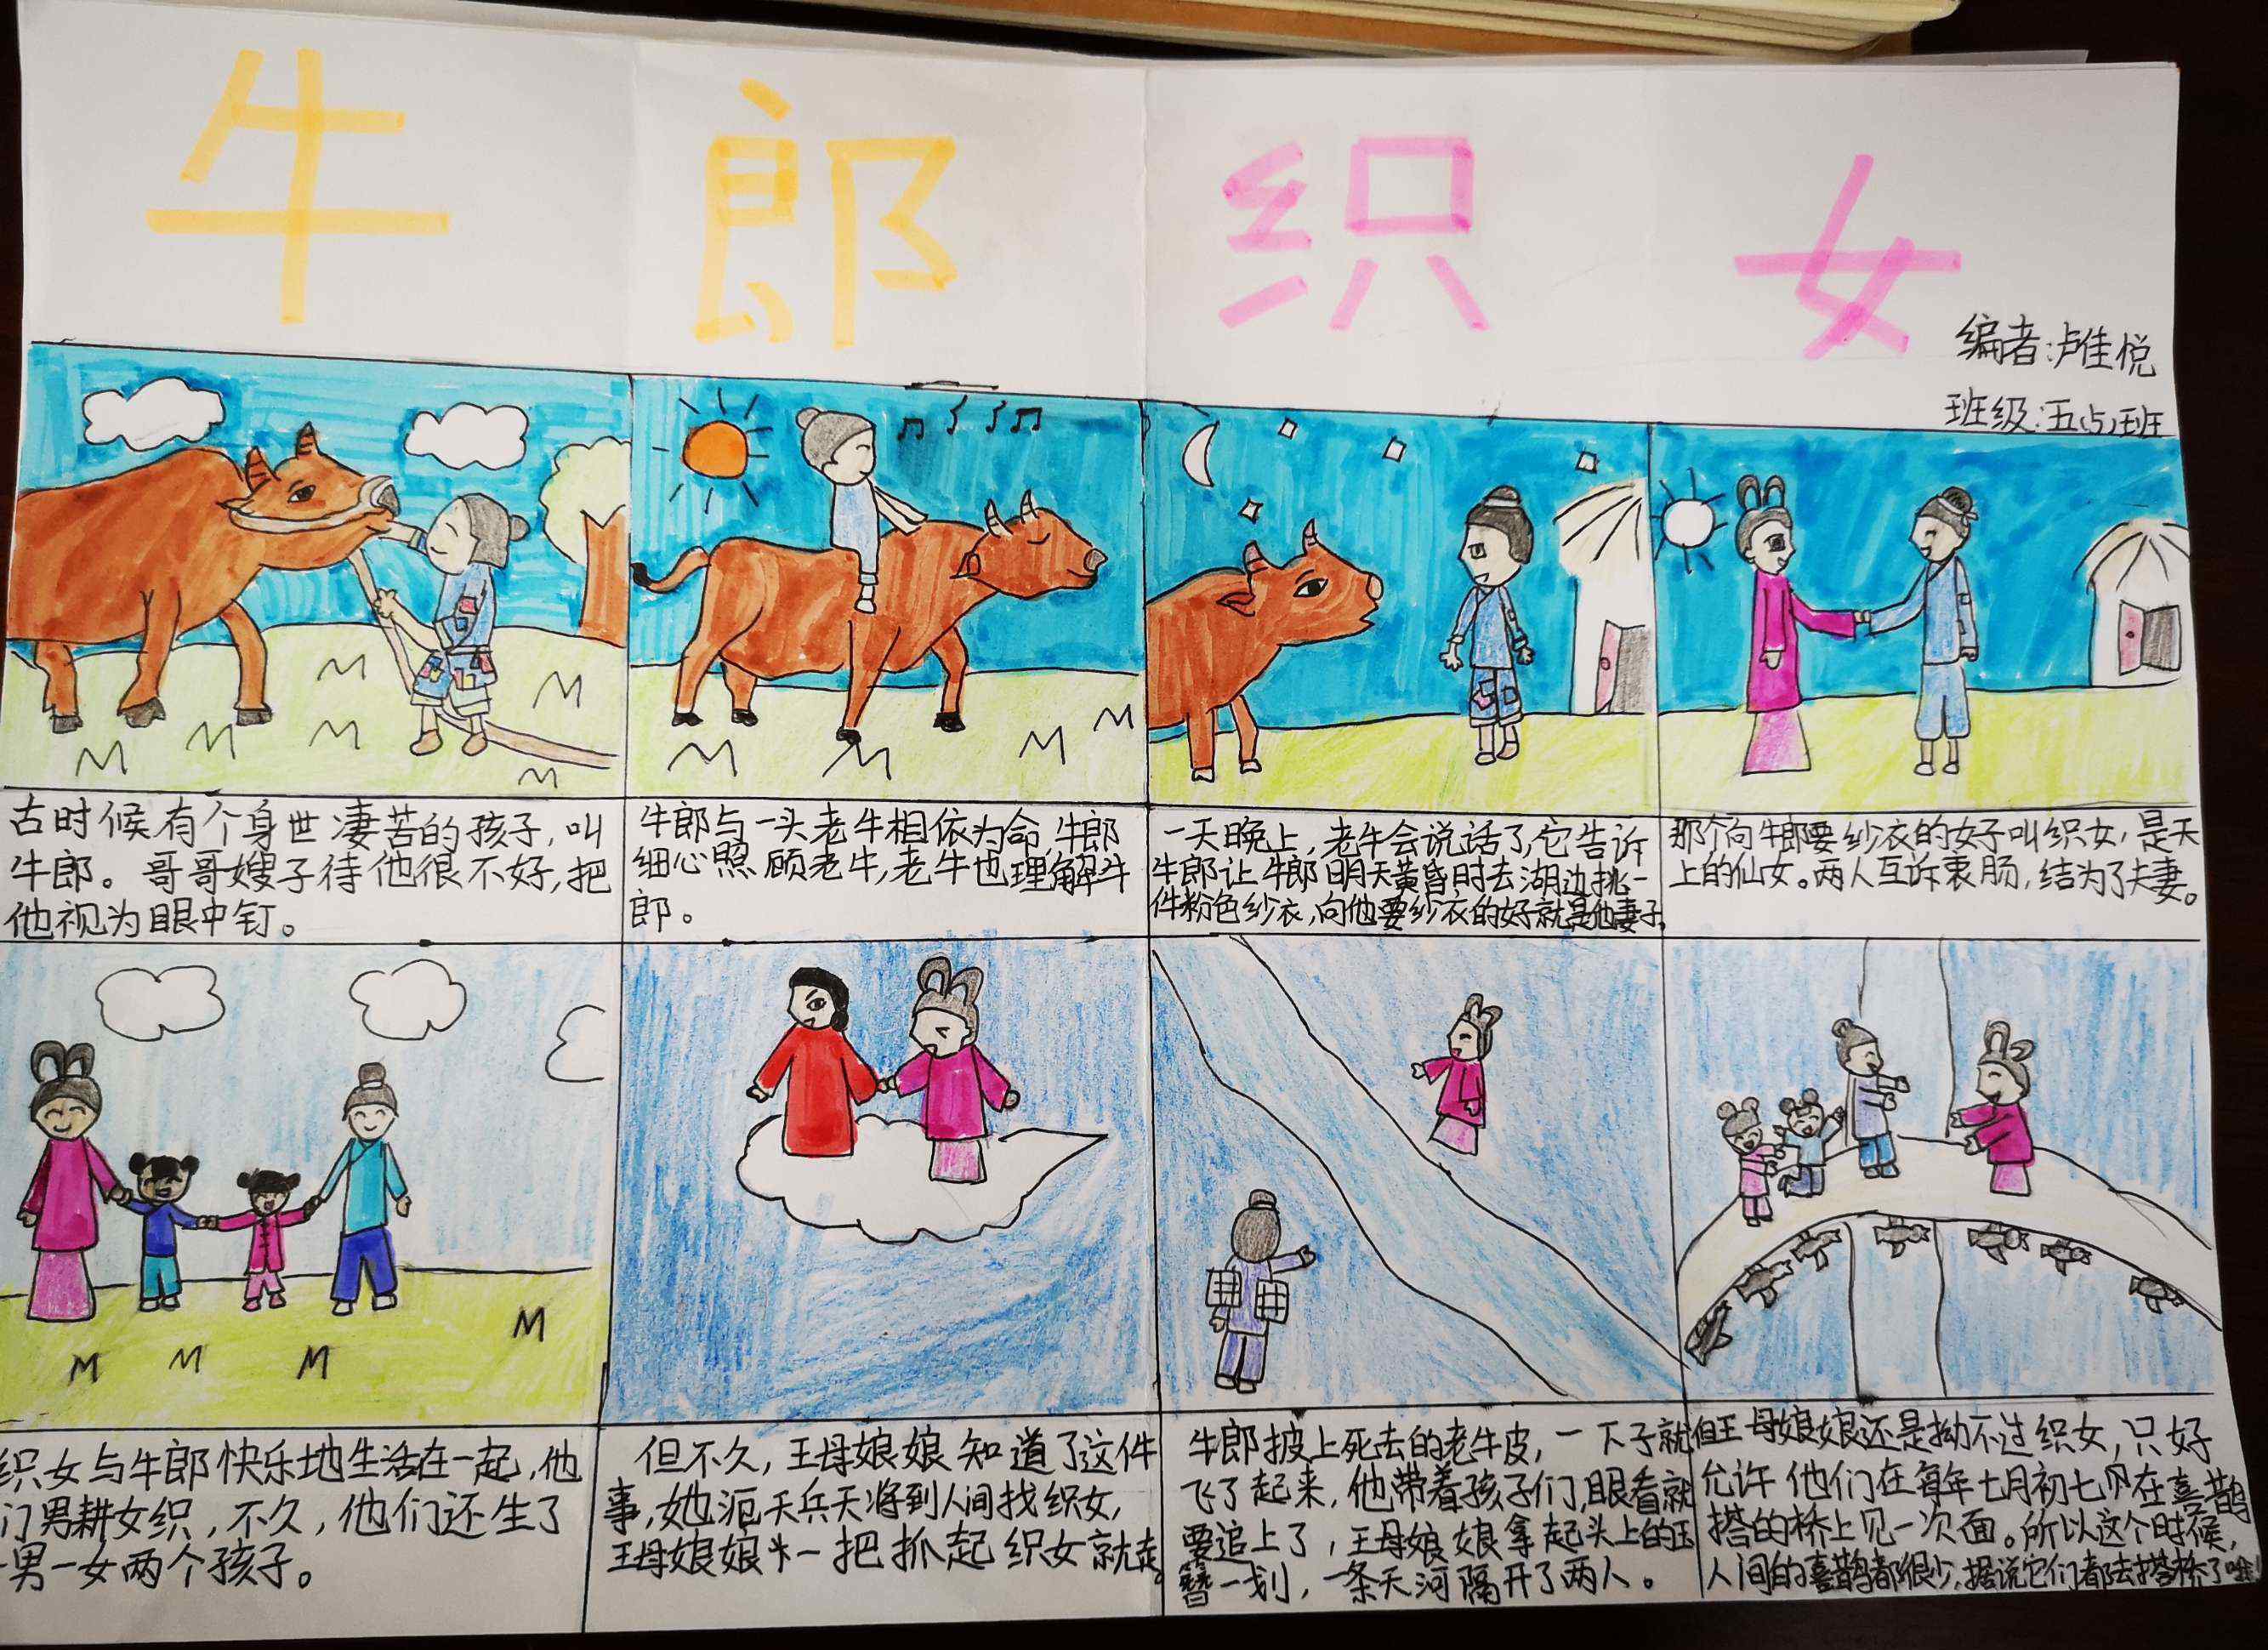 牛郎织女
编者:卢佳悦
班级:五(5)班
古时候有个身世凄苦的孩子,叫
牛郎。哥哥嫂子待他很不好,把
他视为眼中钉。
牛郎与一头老牛相依为命,牛郎
细心照顾老牛,老牛也理解牛
郎。
一天晚上,老牛会说话了,它告诉
牛郎让牛郎明天黄昏时去湖边挑一
件粉色纱衣,向他要纱衣的好就是他妻子,
那个向牛郎要纱衣的女子叫织女,是天
上的仙女。两人互诉衷肠,结为了夫妻。
织女与牛郎快乐地生活在一起,他
们男耕女织,不久,他们还生了
一男一女两个孩子。
但不久,王母娘娘知道了这件
事,她派天兵天将到人间找织女,
王母娘娘一把抓起织女就走。
牛郎披上死去的老牛皮,一下子就
飞了起来,他带着孩子们,眼看就
要追上了,王母娘娘拿起头上的玉
簪一划,一条天河隔开了两人。
但王母娘娘还是拗不过织女,只好
允许他们在每年七月初七在喜鹊
搭的桥上见一次面。所以这个时候,
人间的喜鹊都很少,据说它们都去搭桥了哦!